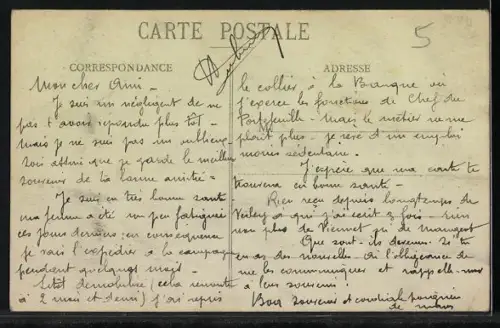 CARTE POSTALE
CORRESPONDANCE
ADRESSE
5
Mon cher Ami –
Je suis un négligent de ne
pas t'avoir répondu plus tôt –
Mais je ne suis pas un oublieux
sois assuré que je garde le meilleur
souvenir de ta bonne amitié –
Je suis en très bonne santé
ma femme a été un peu fatiguée
ces jours derniers; en conséquence
je vais l'expédier à la campagne
pendant quelques mois –
Sitôt démobilisé (cela remonte
à 2 mois et demi) j'ai repris
le collier à la Banque où
j'exerce les fonctions de Chef du
Portefeuille – Mais le métier ne me
plait plus – je rêve d'un emploi
moins sédentaire.
J'espère que ma carte te
trouvera en bonne santé –
Rien reçu depuis longtemps de
à qui j'ai écrit 2 fois – rien
non plus de ni de
Que sont-ils devenus. Si tu
en as des nouvelles – aie l'obligeance de
me les communiquer et rappelle-moi
à leur souvenir!
Bon souvenir et cordiale poignée
de mains